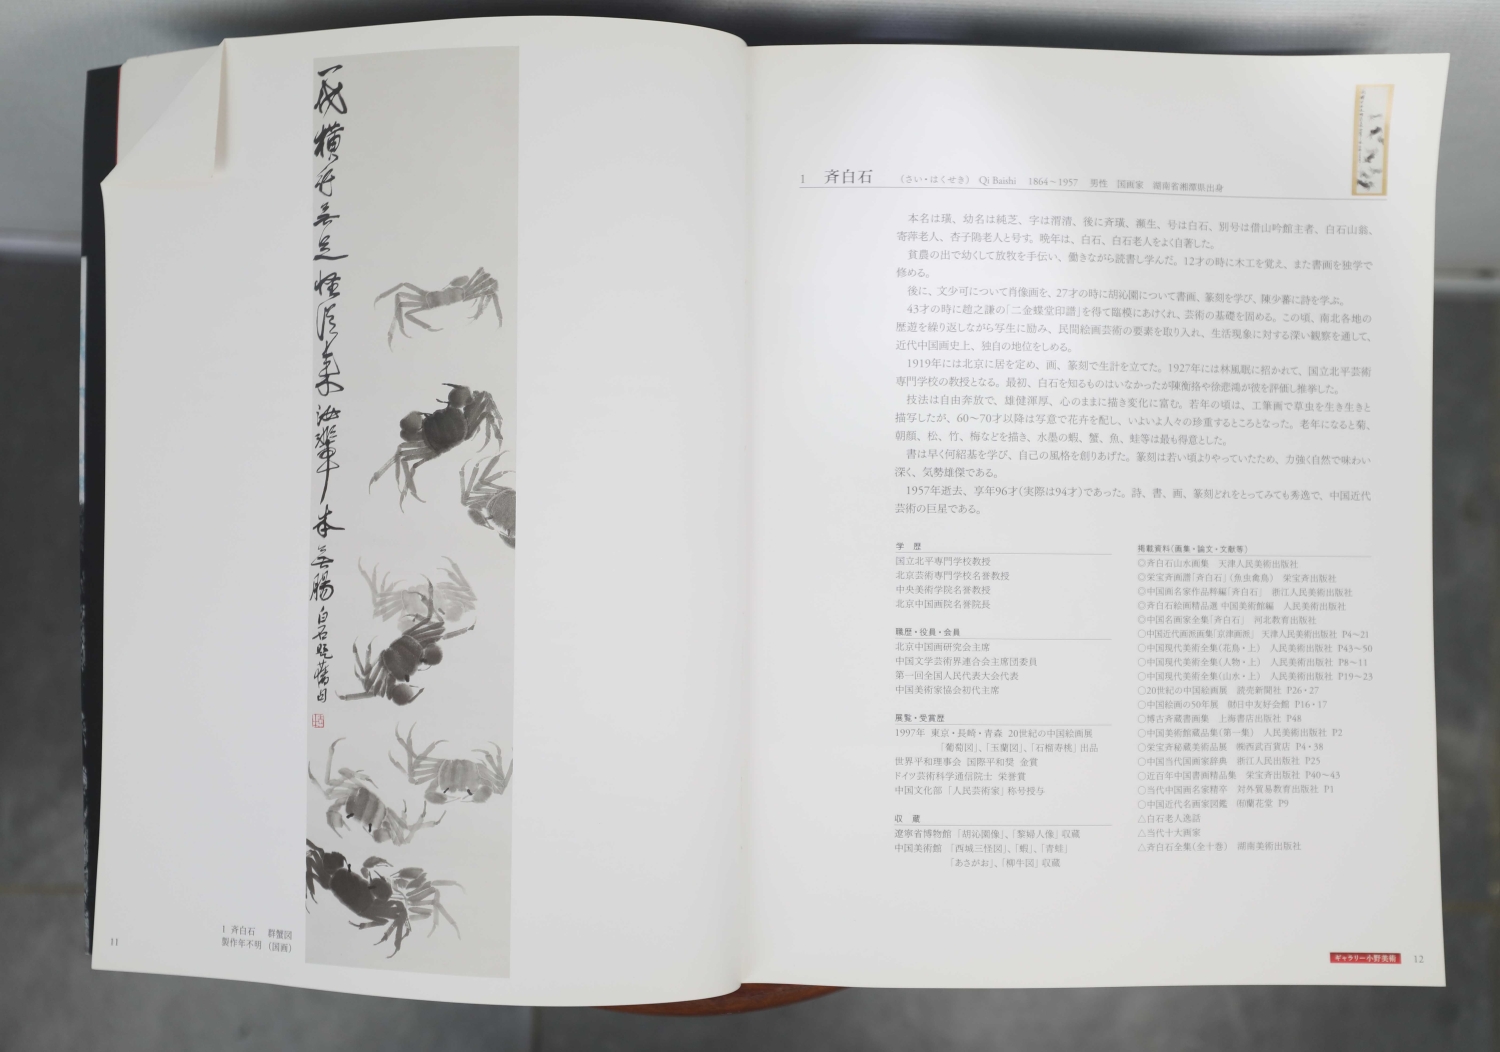 白石
1 斉白石 群蟹図
製作年不明 (国画)
11
1 斉白石 (さい・はくせき) Qi Baishi 1864～1957 男性 国画家 湖南省湘潭県出身
本名は璜、幼名は純芝、字は渭清、後に斉璜、瀕生、号は白石、別号は借山吟館主者、白石山翁、
寄萍老人、杏子隖老人と号す。晩年は、白石、白石老人をよく自署した。
貧農の出で幼くして放牧を手伝い、働きながら読書し学んだ。12才の時に木工を覚え、また書画を独学で
修める。
後に、文少可について肖像画を、27才の時に胡沁園について書画、篆刻を学び、陳少蕃に詩を学ぶ。
43才の時に趙之謙の「二金蝶堂印譜」を得て臨模にあけくれ、芸術の基礎を固める。この頃、南北各地の
歴遊を繰り返しながら写生に励み、民間絵画芸術の要素を取り入れ、生活現象に対する深い観察を通して、
近代中国画史上、独自の地位をしめる。
1919年には北京に居を定め、画、篆刻で生計を立てた。1927年には林風眠に招かれて、国立北平芸術
専門学校の教授となる。最初、白石を知るものはいなかったが陳衡挌や徐悲鴻が彼を評価し推挙した。
技法は自由奔放で、雄健渾厚、心のままに描き変化に富む。若年の頃は、工筆画で草虫を生き生きと
描写したが、60～70才以降は写意で花卉を配し、いよいよ人々の珍重するところとなった。老年になると菊、
朝顔、松、竹、梅などを描き、水墨の蝦、蟹、魚、蛙等は最も得意とした。
書は早く何紹基を学び、自己の風格を創りあげた。篆刻は若い頃よりやっていたため、力強く自然で味わい
深く、気勢雄傑である。
1957年逝去、享年96才(実際は94才)であった。詩、書、画、篆刻どれをとってみても秀逸で、中国近代
芸術の巨星である。
学 歴
国立北平専門学校教授
北京芸術専門学校名誉教授
中央美術学院名誉教授
北京中国画院名誉院長
職歴・役員・会員
北京中国画研究会主席
中国文学芸術界連合会主席団委員
第一回全国人民代表大会代表
中国美術家協会初代主席
展覧・受賞歴
1997年 東京・長崎・青森 20世紀の中国絵画展
「葡萄図」、「玉蘭図」、「石榴寿桃」出品
世界平和理事会 国際平和奨 金賞
ドイツ芸術科学通信院士 栄誉賞
中国文化部 「人民芸術家」称号授与
収 蔵
遼寧省博物館 「胡沁園像」、「黎婦人像」収蔵
中国美術館 「西城三怪図」、「蝦」、「青蛙」
「あさがお」、「柳牛図」収蔵
掲載資料(画集・論文・文献等)
◎斉白石山水画集 天津人民美術出版社
◎栄宝斉画譜「斉白石」(魚虫禽鳥) 栄宝斉出版社
◎中国画名家作品粋編「斉白石」 浙江人民美術出版社
◎斉白石絵画精品選 中国美術館編 人民美術出版社
◎中国名画家全集「斉白石」 河北教育出版社
○中国近代画派画集「京津画派」 天津人民美術出版社 P4～21
○中国現代美術全集(花鳥・上) 人民美術出版社 P43～50
○中国現代美術全集(人物・上) 人民美術出版社 P8～11
○中国現代美術全集(山水・上) 人民美術出版社 P19～23
○20世紀の中国絵画展 読売新聞社 P26・27
○中国絵画の50年展 財日中友好会館 P16・17
○博古斉蔵書画集 上海書店出版社 P48
○中国美術館蔵品集(第一集) 人民美術出版社 P2
○栄宝斉秘蔵美術品展 ㈱西武百貨店 P4・38
○中国当代国画家辞典 浙江人民出版社 P25
○近百年中国書画精品集 栄宝斉出版社 P40～43
○当代中国画名家精卒 対外貿易教育出版社 P1
○中国近代名画家図鑑 ㈲蘭花堂 P9
△白石老人逸話
△当代十大画家
△斉白石全集(全十巻) 湖南美術出版社
ギャラリー小野美術 12